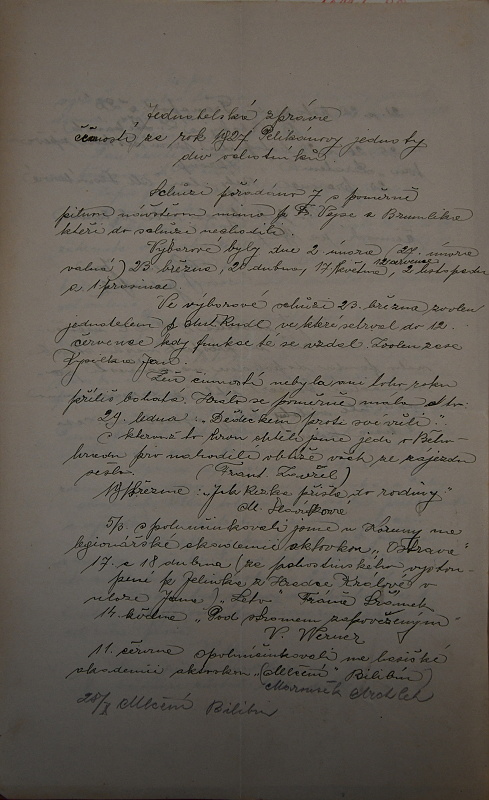 Jednatelská zpráva
činnosti za rok 1927 Pelikánovy jednoty
div. ochotníků
Schůzí pořádáno 7 s poměrně
pilnou návštěvou mimo p. Fr. Vejse a Brumlíka
kteří do schůze nechodili.
Výborové byly dne 2 února (27. února
valná) 23. března, 28 dubna, 17. května, 12 července, 2 listopadu
a 1 prosince.
Ve výborové schůzi 23. března zvolen
jednatelem p. Ant. Rudl ve které setrval do 12.
července kdy funkce té se vzdal. Zvolen zase
Jan.
Žeň činnosti nebyla ani toho roku
příliš bohatá. Hrálo se poměrně málo a to:
29. ledna „Dědečkem proti své vůli“.
S kterou to hrou chtěli jsme jeti o
pro nahodilé obtíže však ze zájezdu
sešlo. (Frant. Zavřel)
19/března: „Jak Kezka přišla do rodiny“
M. Havlíková
5/3. spoluúčinkovali jsme u na
legionářské akademii aktovkou „Ostrava“
17. a 18 dubna (za pohostinského vystou-
pení p. Jelínka z Hradce Králové v
úloze Jana) „Léto“ Fráňa Šrámek
14. května „Pod stromem zapověženým“
V. Werner
11. června spoluúčinkovali na hasičské
akademii aktovkou („Mlčení“ Bilibin)
28/X Mlčení Bilibin